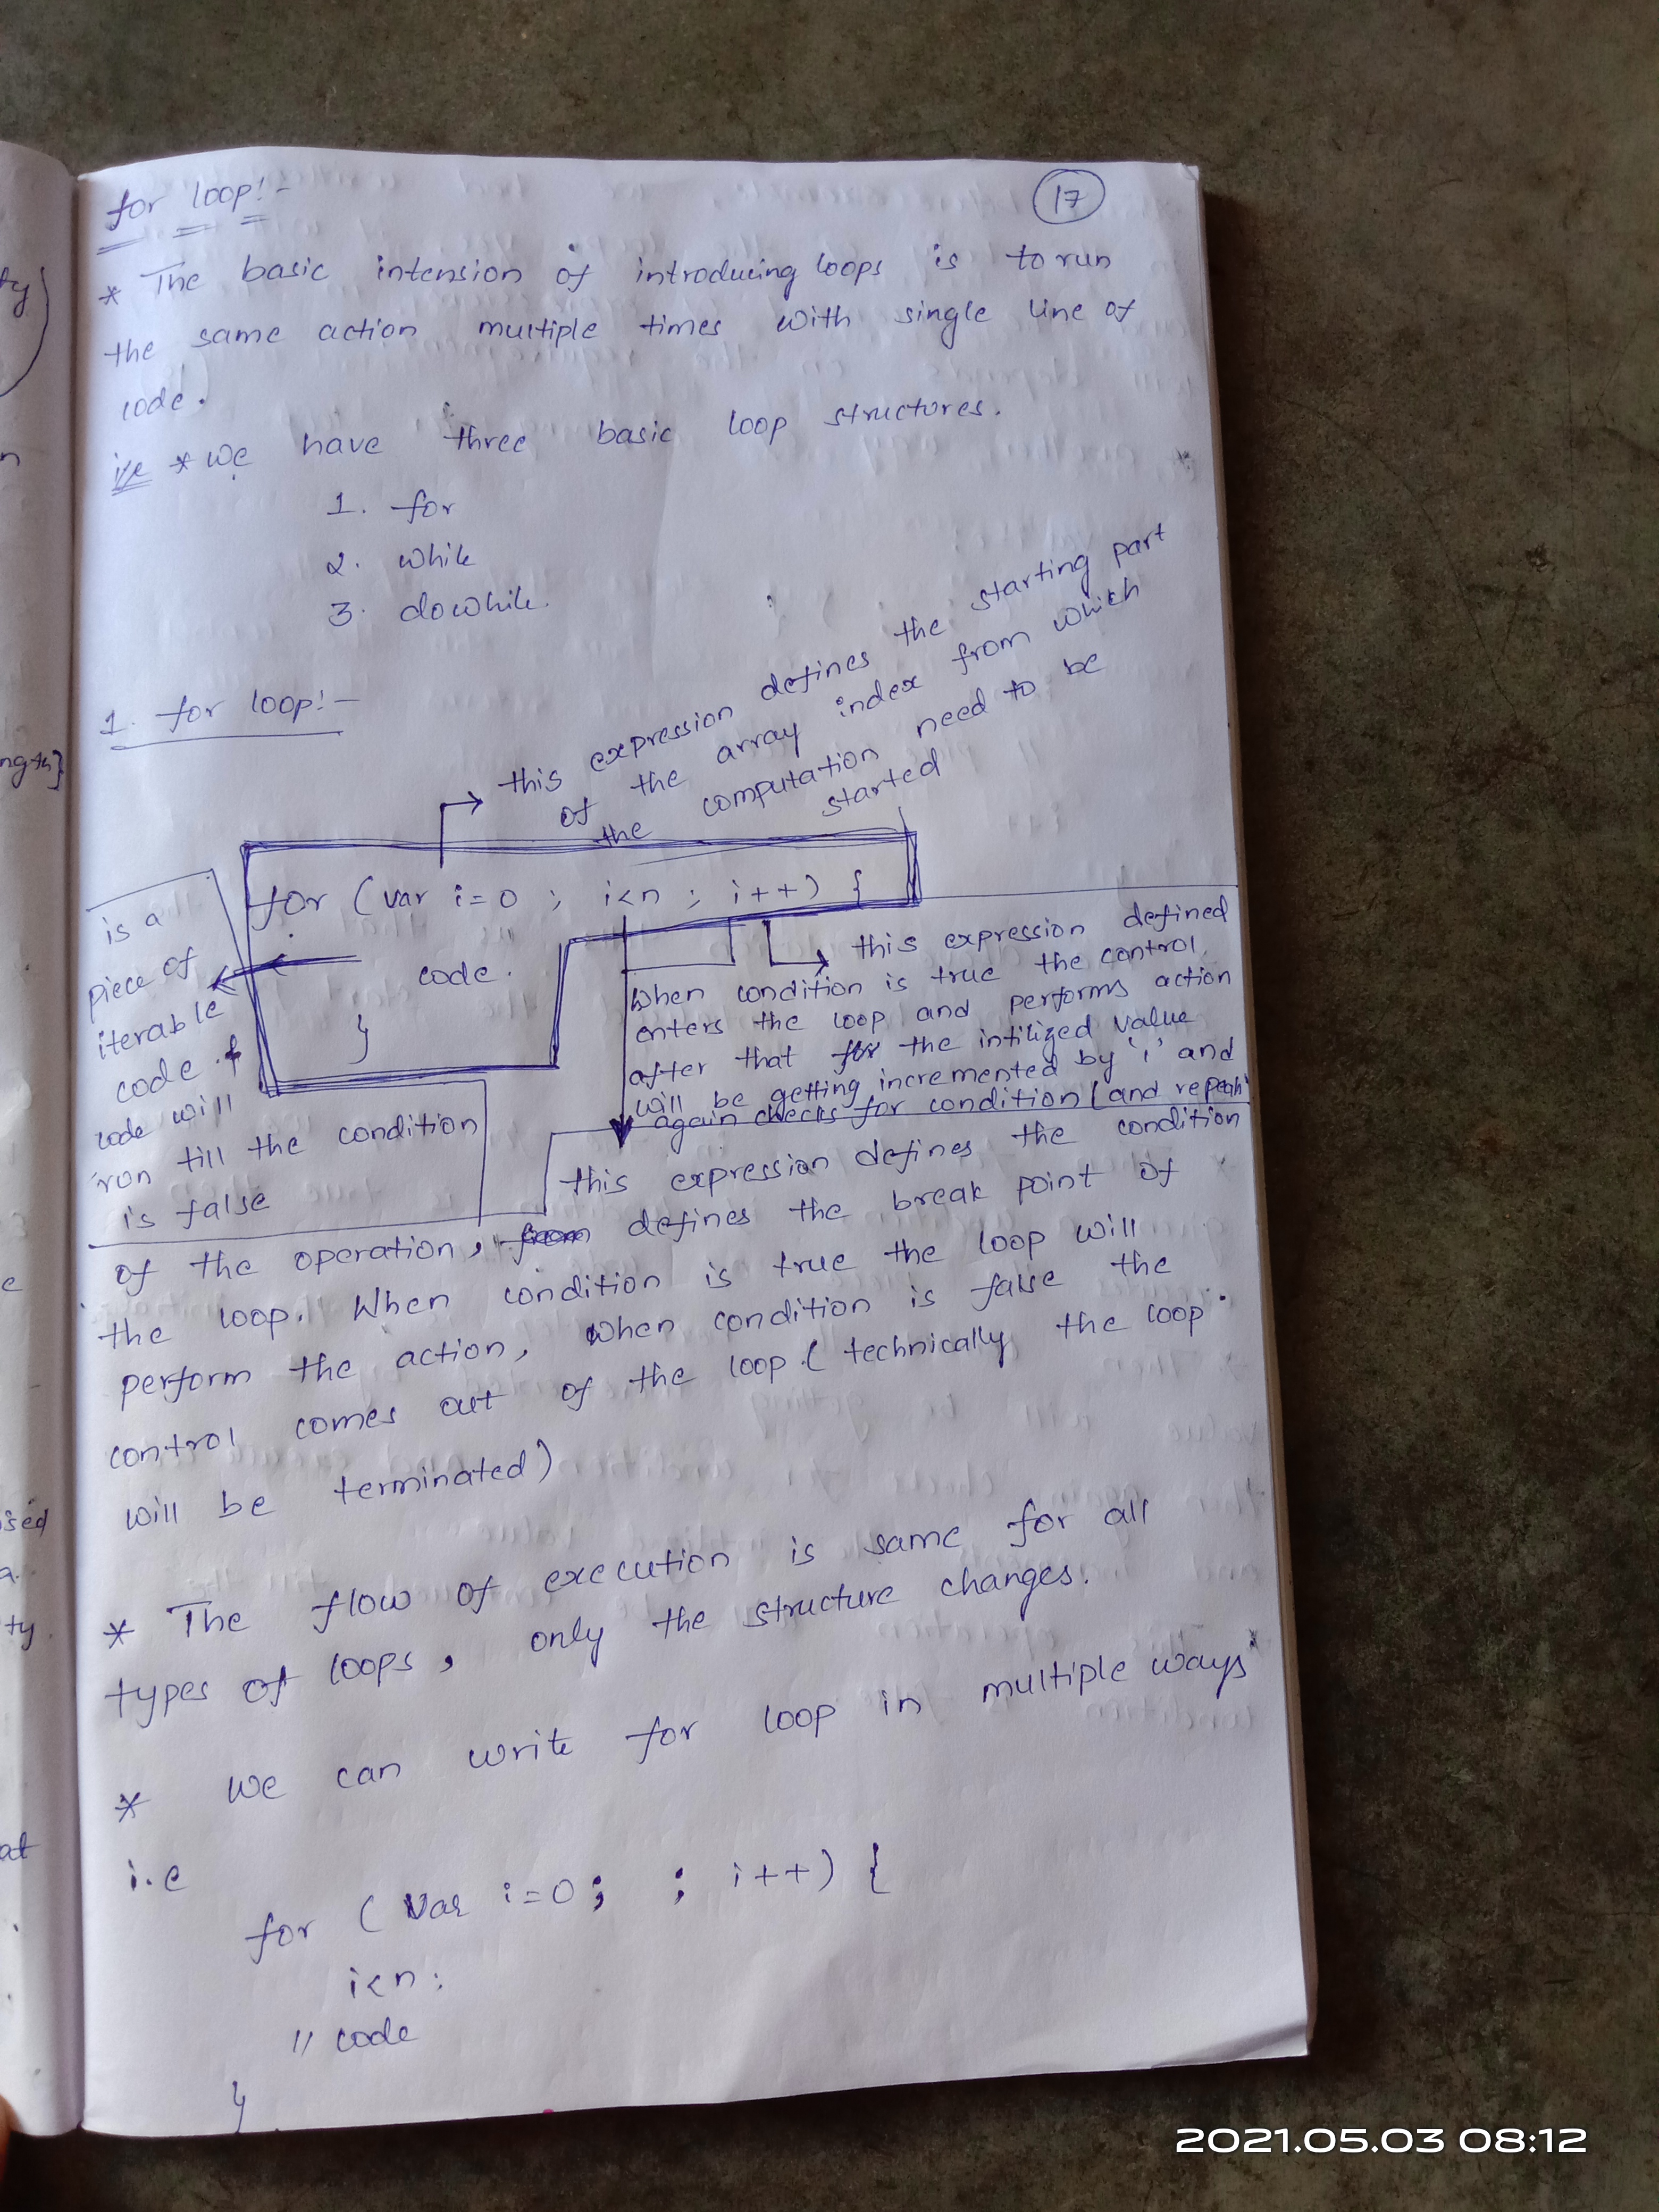 for loop:-
17
* The basic intension of introducing loops is to run
the same action multiple times with single line of
code.
i/e * we have three basic loop structures.
1. for
2. while
3. dowhile.
1. for loop:-
this expression defines the starting part
of the array index from which
the computation need to be
started
for (var i=0 ; i<n ; i++) {
code.
}
is a
piece of
iterable
code &
code will
run till the condition
is false
this expression defined
when condition is true the control
enters the loop and performs action
after that for the intilized value
will be getting incremented by 'i' and
again checks for condition (and repeats
this expression defines the condition
of the operation, from defines the break point of
the loop. When condition is true the loop will
perform the action, when condition is false the
control comes out of the loop. (technically the loop
will be terminated)
* The flow of execution is same for all
types of loops, only the structure changes.
* we can write for loop in multiple ways
i.e
for (var i=0; ; i++) {
i<n;
// code
}
ty
n
ngth}
e
ised
a.
ty.
at
2021.05.03 08:12